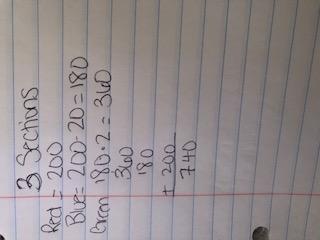 3 Sections
Red = 200
Blue = 200-20 = 180
Green 180·2 = 360
360
180
+ 200
740